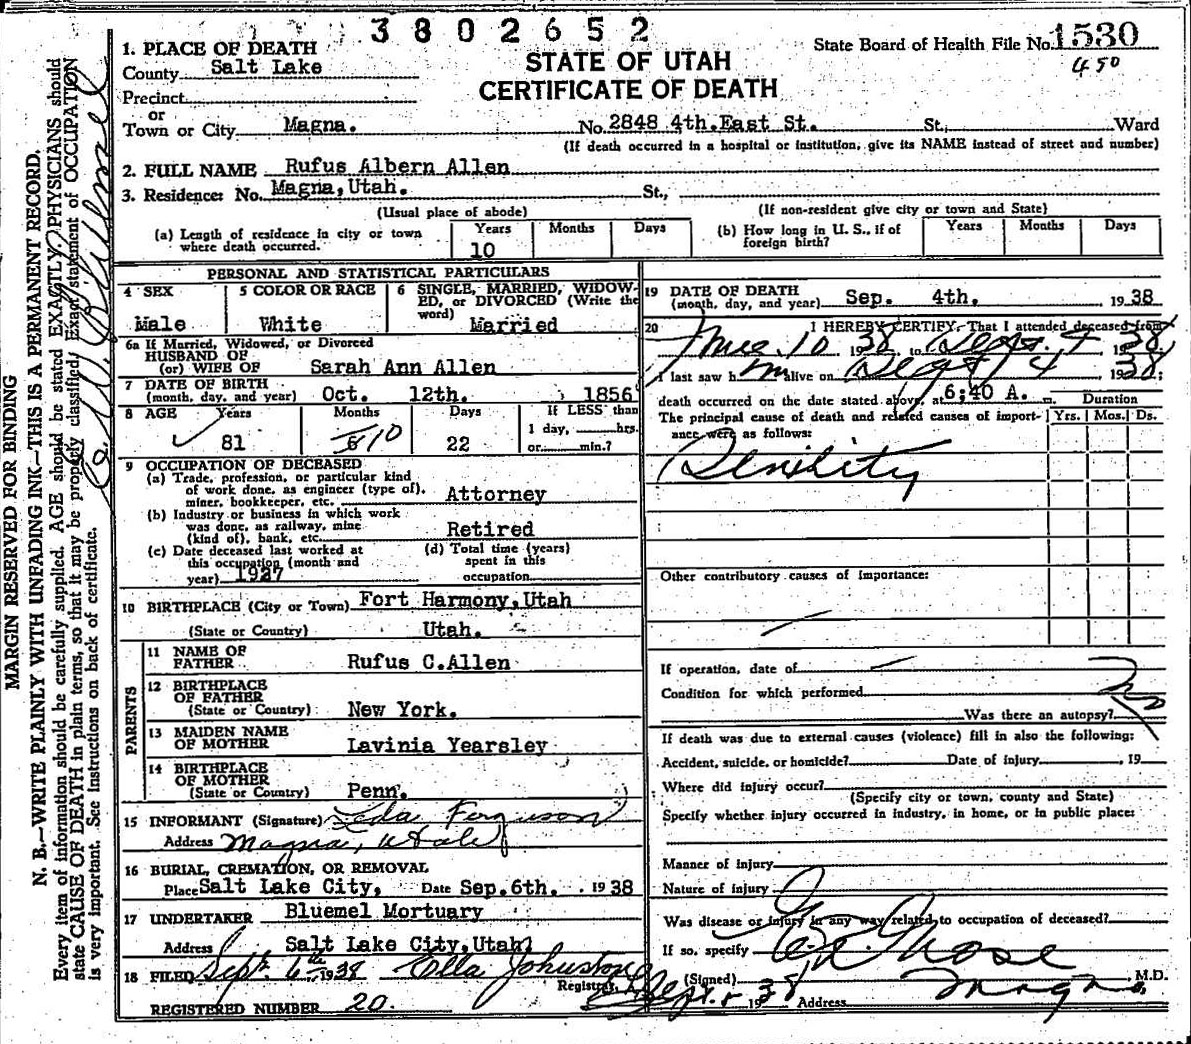 3802652
State Board of Health File No. 1530
450
STATE OF UTAH
CERTIFICATE OF DEATH
1. PLACE OF DEATH
County Salt Lake
Precinct
or
Town or City Magna. No. 2848 4th.East St. St., Ward
(If death occurred in a hospital or institution, give its NAME instead of street and number)
2. FULL NAME Rufus Albern Allen
3. Residence: No. Magna,Utah. St.,
(Usual place of abode) (If non-resident give city or town and State)
(a) Length of residence in city or town where death occurred. Years 10 Months Days (b) How long in U. S., if of foreign birth? Years Months Days
PERSONAL AND STATISTICAL PARTICULARS
4 SEX Male
5 COLOR OR RACE White
6 SINGLE, MARRIED, WIDOWED, or DIVORCED (Write the word) Married
6a If Married, Widowed, or Divorced
HUSBAND OF
(or) WIFE OF Sarah Ann Allen
7 DATE OF BIRTH
(month, day, and year) Oct. 12th. 1856
8 AGE Years 81 Months 10 Days 22 If LESS than 1 day, hrs. or min.?
9 OCCUPATION OF DECEASED
(a) Trade, profession, or particular kind
of work done, as engineer (type of),
miner, bookkeeper, etc. Attorney
(b) Industry or business in which work
was done, as railway, mine
(kind of), bank, etc. Retired
(c) Date deceased last worked at
this occupation (month and
year) 1927
(d) Total time (years)
spent in this
occupation
10 BIRTHPLACE (City or Town) Fort Harmony,Utah
(State or Country) Utah.
PARENTS
11 NAME OF
FATHER Rufus C.Allen
12 BIRTHPLACE
OF FATHER
(State or Country) New York.
13 MAIDEN NAME
OF MOTHER Lavinia Yearsley
14 BIRTHPLACE
OF MOTHER
(State or Country) Penn.
15 INFORMANT (Signature) Leda Ferguson
Address Magna, Utah
16 BURIAL, CREMATION, OR REMOVAL
Place Salt Lake City, Date Sep.6th. 1938
17 UNDERTAKER Bluemel Mortuary
Address Salt Lake City,Utah
18 FILED Sept. 6th 1938 Ella Johnston
Registrar
REGISTERED NUMBER 20.
19 DATE OF DEATH
(month, day, and year) Sep. 4th. 1938
20 I HEREBY CERTIFY, That I attended deceased from
Aug. 10 1938 to Sept. 4 1938
I last saw him alive on Sept 4 1938;
death occurred on the date stated above, at 6:40 A. m. Duration
The principal cause of death and related causes of importance were as follows: Yrs. Mos. Ds.
Senility
Other contributory causes of importance:
If operation, date of
Condition for which performed
Was there an autopsy? No
If death was due to external causes (violence) fill in also the following:
Accident, suicide, or homicide? Date of injury , 19
Where did injury occur?
(Specify city or town, county and State)
Specify whether injury occurred in industry, in home, or in public place:
Manner of Injury
Nature of injury
Was disease or injury in any way related to occupation of deceased?
If so, specify
(Signed) M.D.
Sept. 5 1938 Address Magna
MARGIN RESERVED FOR BINDING
N. B.—WRITE PLAINLY WITH UNFADING INK—THIS IS A PERMANENT RECORD.
Every item of information should be carefully supplied. AGE should be stated EXACTLY. PHYSICIANS should
state CAUSE OF DEATH in plain terms, so that it may be properly classified. Exact statement of OCCUPATION
is very important. See instructions on back of certificate.